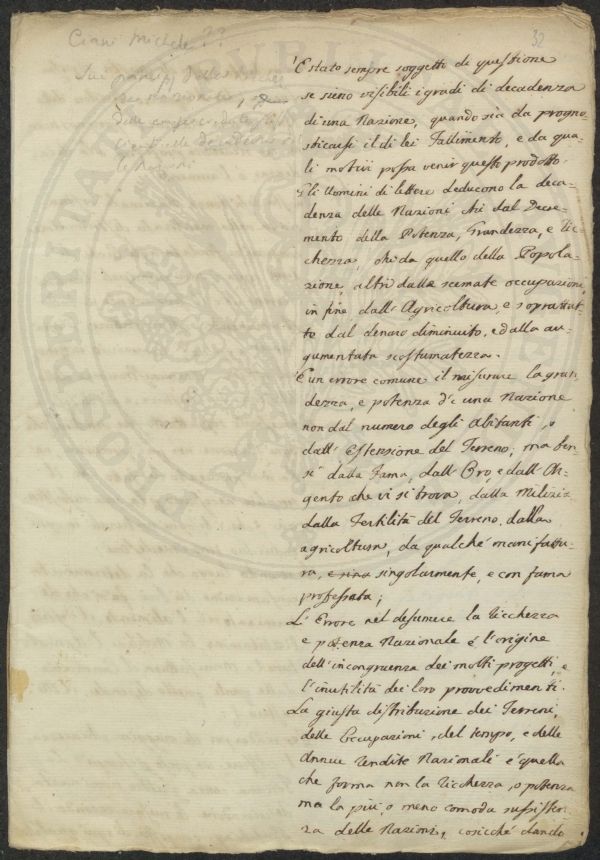 Ciani Michele ??
32
È stato sempre soggetto di questione
se sieno visibili i gradi di decadenza
di una Nazione, quando sia da progno-
sticarsi il di lei Fallimento, e da qua-
li motivi possa venir questo prodotto.
Gli Uomini di lettere deducono la deca-
denza delle Nazioni chi dal Decre-
mento della Potenza, Grandezza, e Ric-
chezza, chi da quello della Popola-
zione, altri dalle scemate occupazioni,
in fine dall'Agricoltura, e soprattut-
to dal denaro diminuito, e dalla au-
gumentata scostumatezza.
È un errore comune il misurare la gran-
dezza, e potenza d'una Nazione
non dal numero degli Abitanti, o
dall'Estensione del Terreno, ma ben-
sì dalla Fama, dall'Oro, e dall'Ar-
gento che vi si trova, dalla Milizia
dalla Fertilità del Terreno, dalla
agricoltura, da qualche manifattu-
ra, singolarmente, e con fama
professata;
L'Errore nel desumere la Ricchezza
e potenza Nazionale è l'origine
dell'incongruenza dei molti progetti, e
l'inutilità dei loro provvedimenti.
La giusta distribuzione dei Terreni,
delle Occupazioni, del tempo, e delle
Annue rendite Nazionali è quella
che forma non la Ricchezza, o potenza
ma la più, o meno comoda sussisten-
za delle Nazioni, cosicché dando